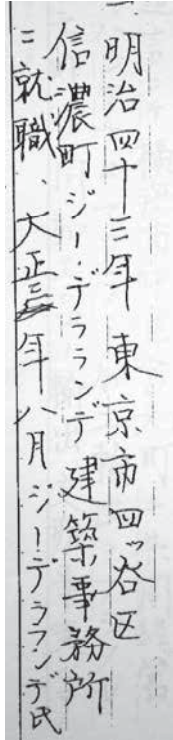 一、明治四十三年東京市四ッ谷区
信濃町ジー・デラランデ建築事務所
ニ就職、大正三年八月ジーデラランデ氏